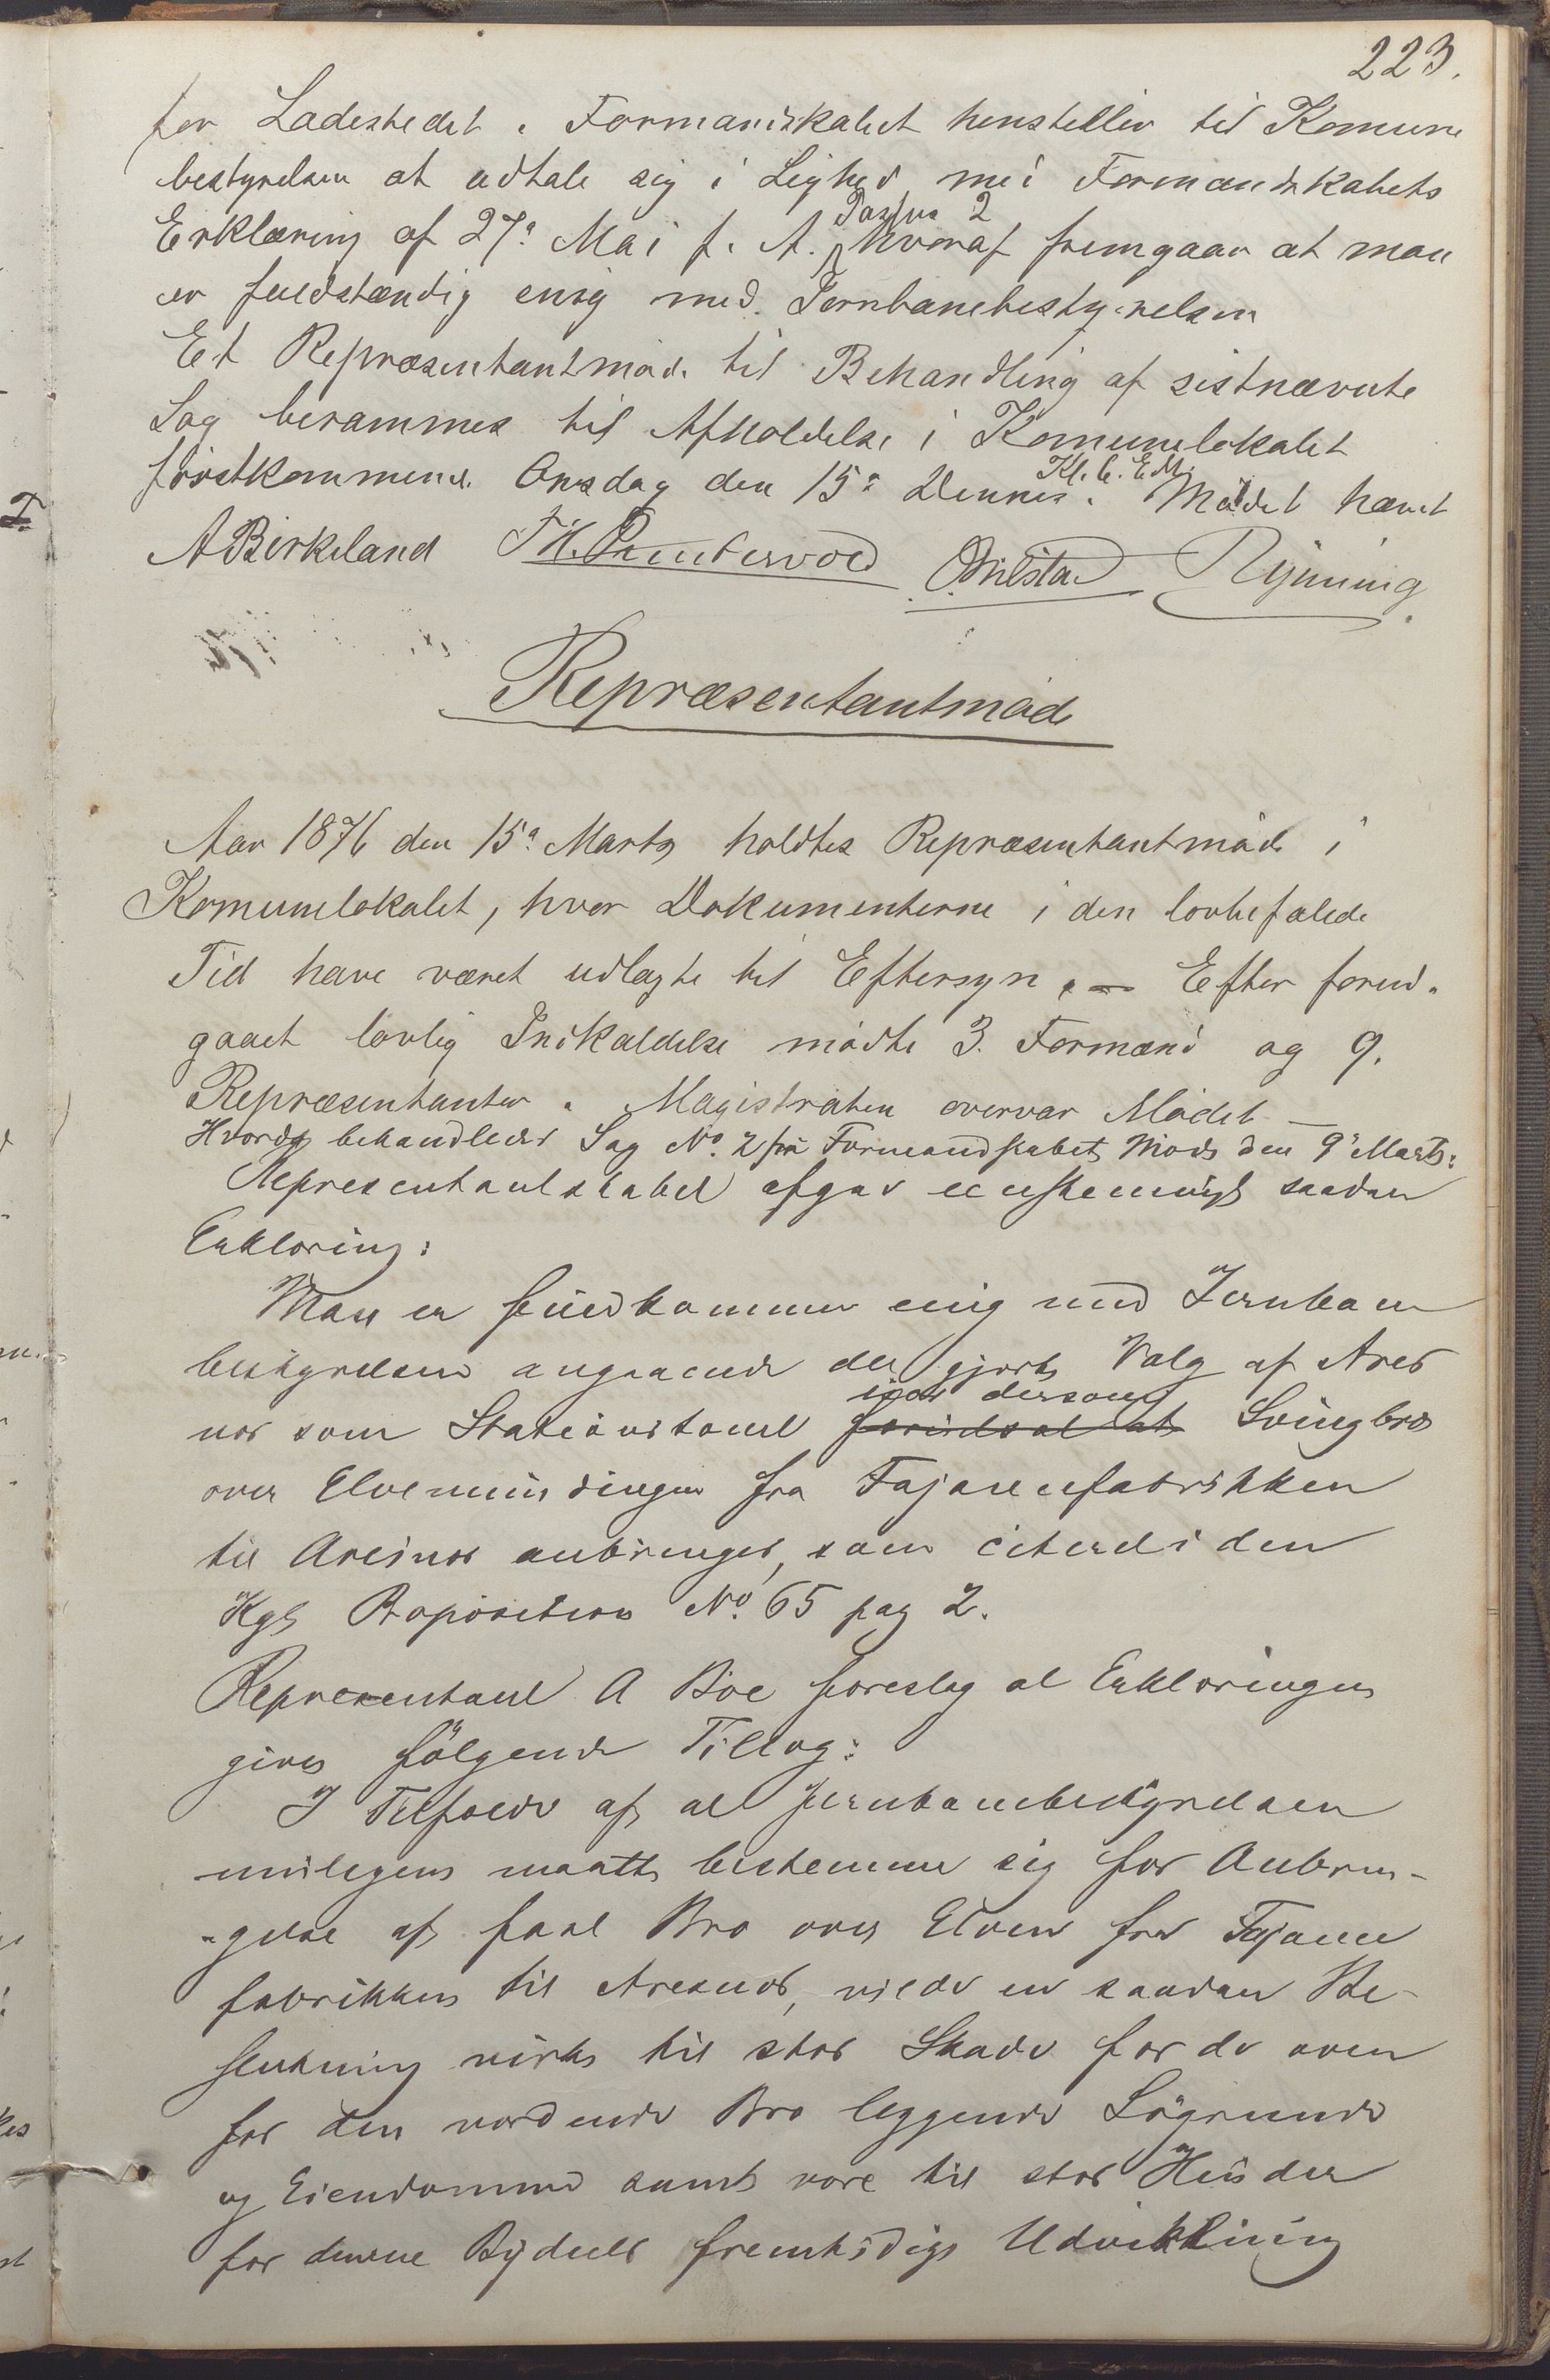 223.
for Ladestedet. Formandskabet henstiller til Komune
bestyrelsen at udtale sig i Lighed med Formandskabets
Erklæring af 27de Mai f. A. Passus 2 hvoraf fremgaar at man
er fuldstændig enig med Jernbanebestyrelsen
Et Repræsentantmøde til Behandling af sistnævnte
Sag berammes til Afholdelse i Komunelokalet
førstkommende Onsdag den 15de Dennes Kl. 6. E.M. Mødet hævet
A Birkeland
Rynning
Repræsentantmøde
Aar 1876 den 15de Marts holdtes Repræsentantmøde i
Komunelokalet, hvor Dokumenterne i den lovbefalede
Tid have været udlagte til Eftersyn. — Efter forud-
gaaet lovlig Indkaldelse mødte 3. Formænd og 9.
Repræsentanter. Magistraten overvar Mødet —
Hvorda behandledes Sag No. 2 fra Formandskabets Møde den 9de Marts:
Representantskabet afgav eenstemmigt saadan
Erklæring:
Man er fuldkommen enig med Jernbane
bestyrelsen angaaende det gjorte Valg af Ares
nes som Stationstomt især dersom forudsat at Svingbro
over Elvemundingen fra Fajancefabrikken
til Aresnes anbringes, som citeret i den
Kgl. Proposition No. 65 pag 2.
Representant A Bøe foreslog at Erklæringen
gives følgende Tillæg:
I Tilfælde af at Jernbanebestyrelsen
muligens maatte bestemme sig for Anbrin-
-gelse af fast Bro over Elven fra Fajance
fabrikken til Aresnes, vilde en saadan Be-
slutning virke til stor Skade for de oven
for den vordende Bro liggende Søgrunde
og Eiendomme samt være til stor Hinder
for denne Bydeels fremtidige Udvikling